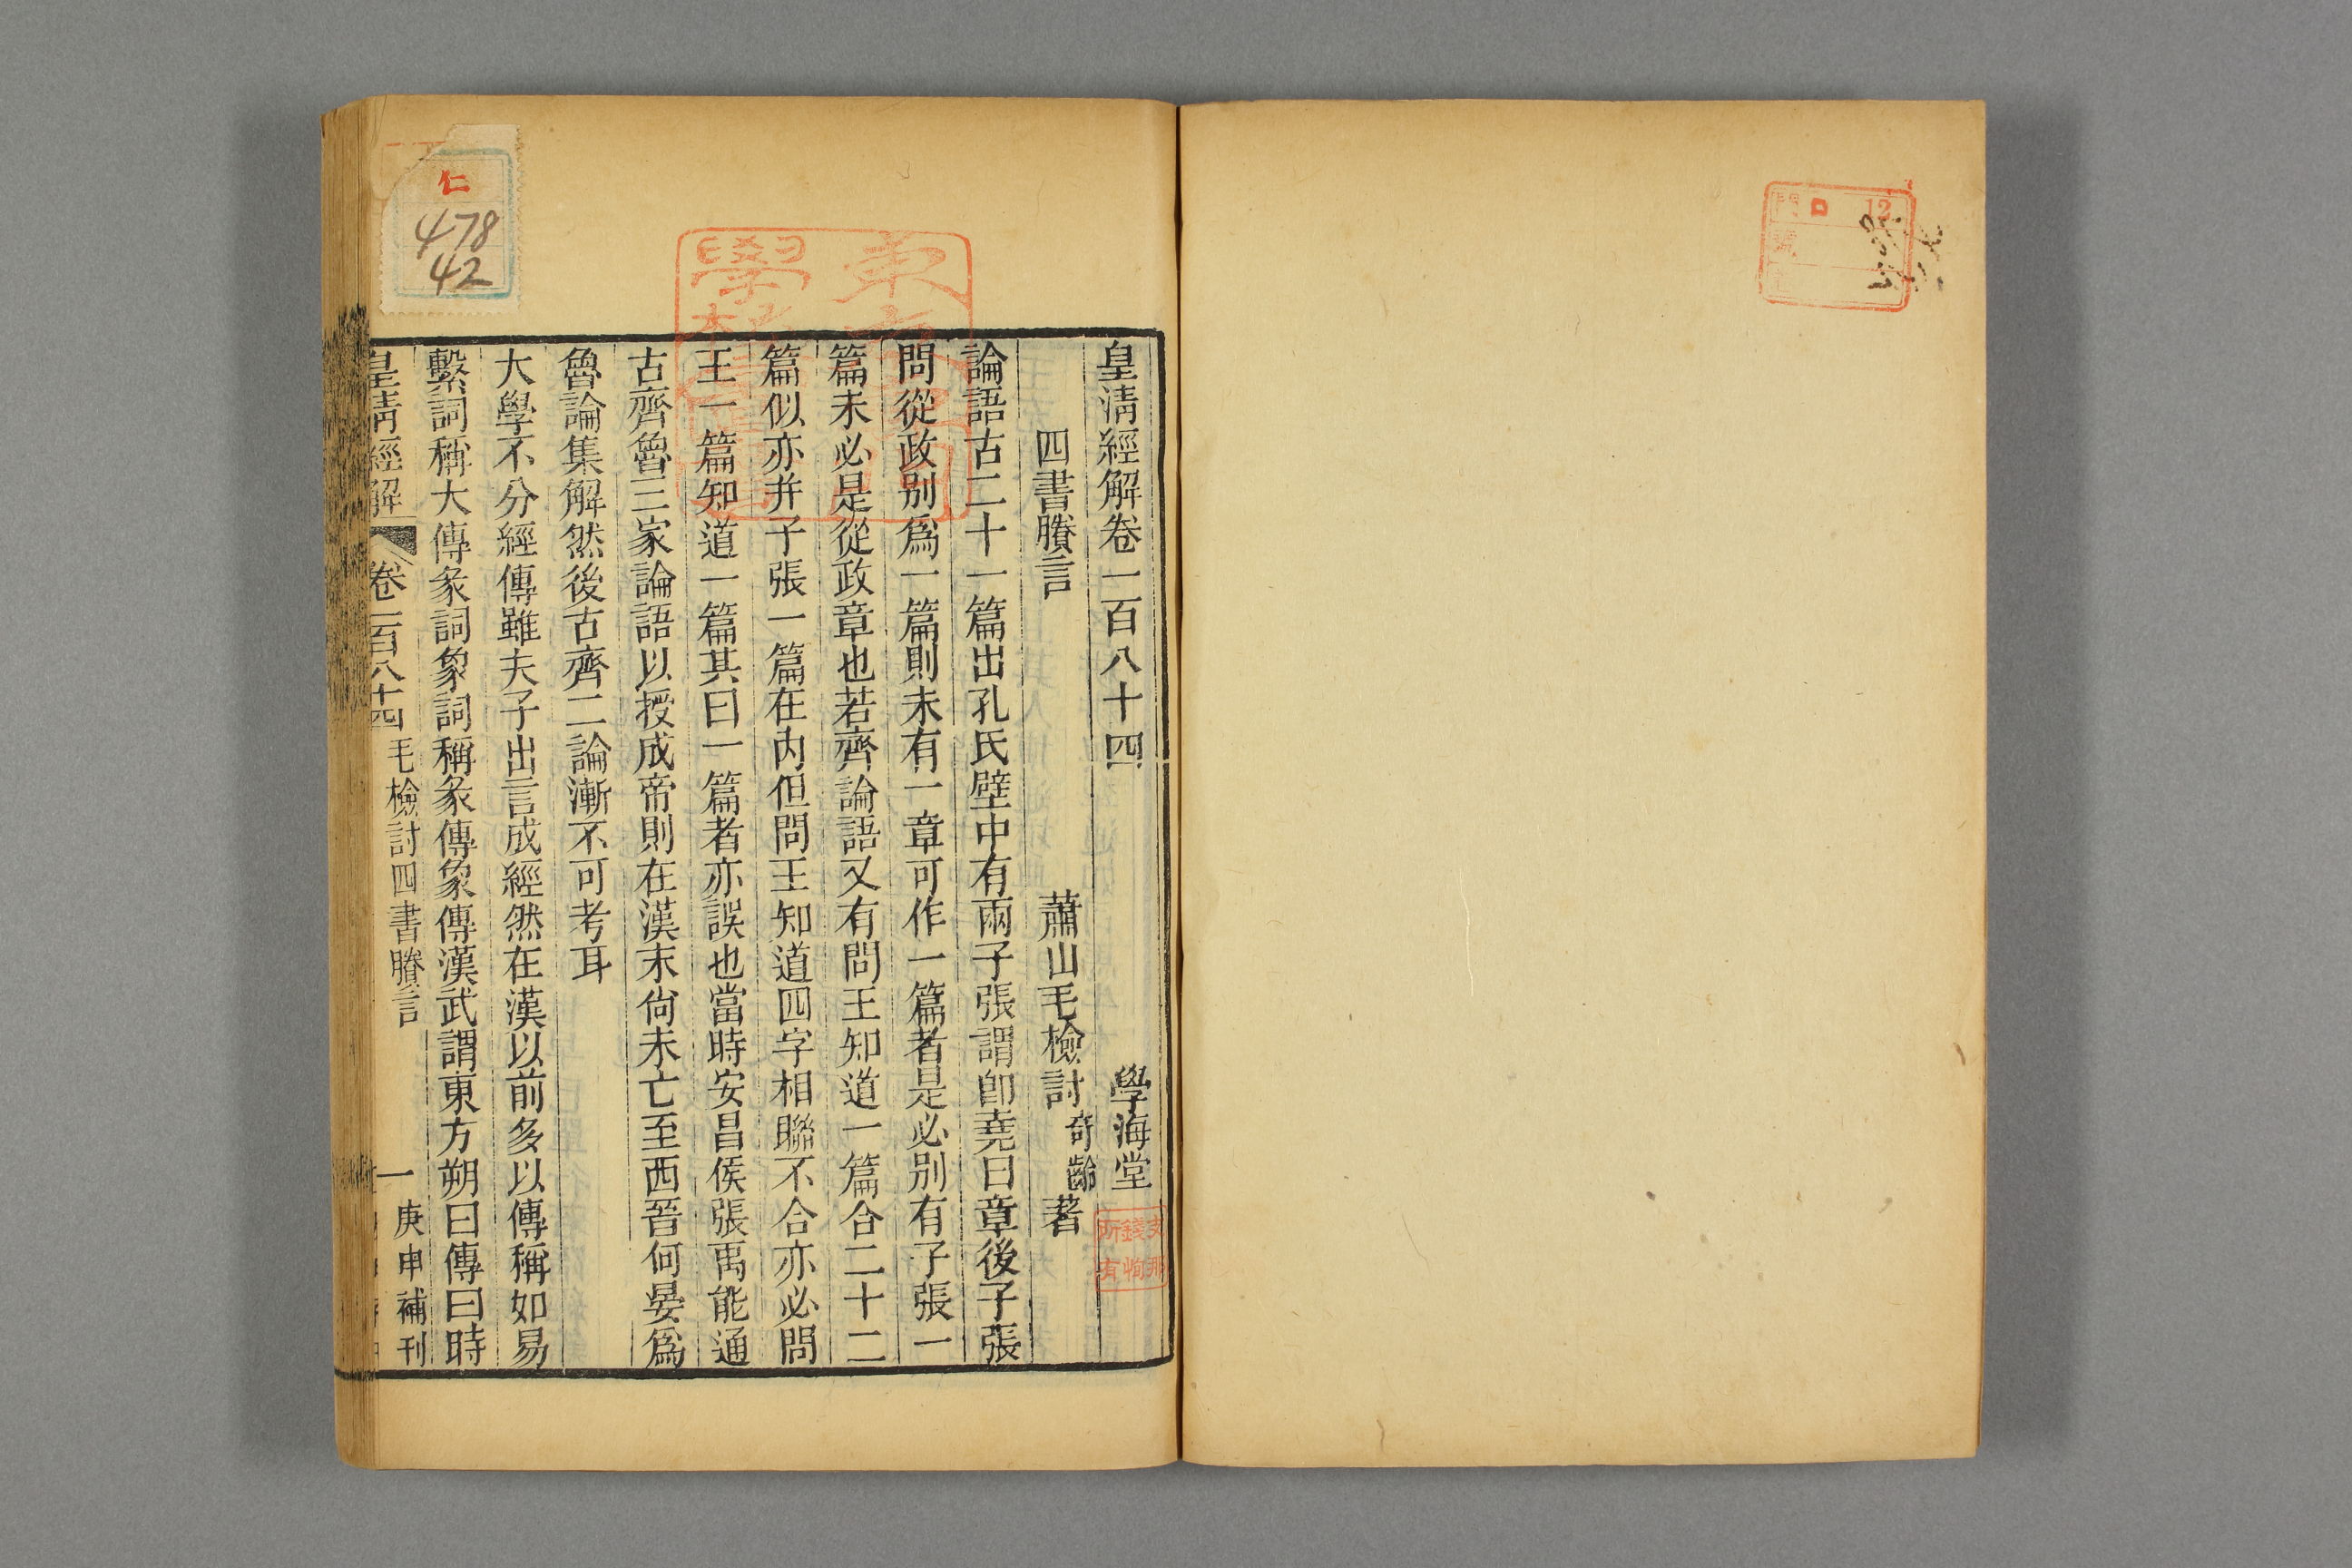 門 口 12
皇清經解卷一百八十四
學海堂
四書賸言
蕭山毛檢討奇齡著
論語古二十一篇出孔氏壁中有兩子張謂卽堯曰章後子張
問從政别爲一篇則未有一章可作一篇者是必别有子張一
篇未必是從政章也若齊論語又有問王知道一篇合二十二
篇似亦并子張一篇在内但問王知道四字相聯不合亦必問
王一篇知道一篇其曰一篇者亦誤也當時安昌侯張禹能通
古齊魯三家論語以授成帝則在漢末尙未亡至西晉何晏爲
魯論集解然後古齊二論漸不可考耳
大學不分經傳雖夫子出言成經然在漢以前多以傳稱如易
繫詞稱大傳彖詞象詞稱彖傳象傳漢武謂東方朔曰傳曰時
皇清經解
卷一百八十四
毛檢討四書賸言
一
庚申補刊
支那
錢恂
所有
仁
478
42